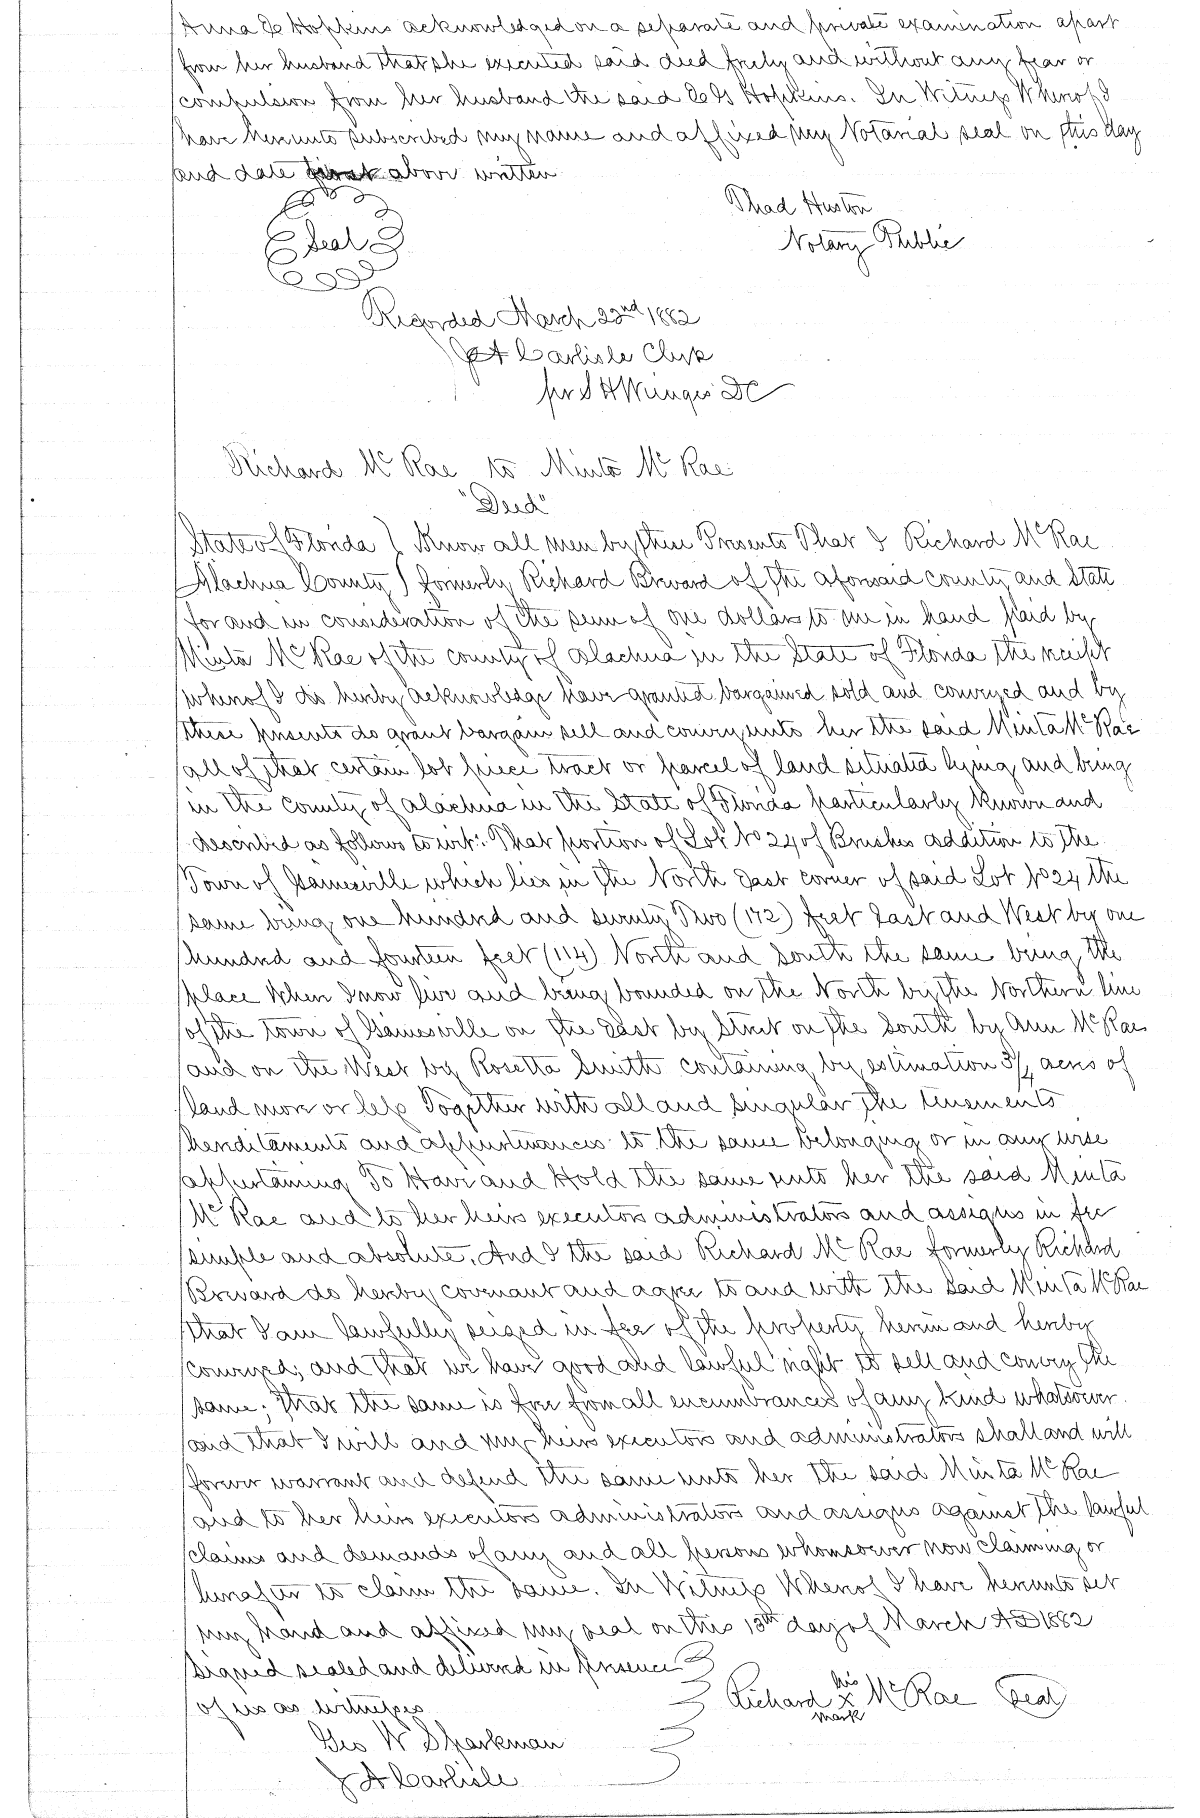 Anna E Hopkins acknowledged on a separate and private examination apart
from her husband that she executed said deed freely and without any fear or
compulsion from her husband the said E G Hopkins. In Witness Whereof I
have hereunto subscribed my name and affixed my Notarial seal on this day
and date first above written
Thad Huston
Seal
Notary Public
Recorded March 22nd 1882
J A Carlisle Clerk
per S H Wienges DC
Richard Mc Rae to Minta Mc Rae
"Deed"
State of Florida } Know all men by these Presents That I Richard McRae
Alachua County } formerly Richard Brevard of the aforesaid county and State
for and in consideration of the sum of one dollars to me in hand paid by
Minta Mc Rae of the county of Alachua in the State of Florida the receipt
whereof I do hereby acknowledge have granted bargained sold and conveyed and by
these presents do grant bargain sell and convey unto her the said Minta McRae
all of that certain lot piece tract or parcel of land situated lying and being
in the County of Alachua in the State of Florida particularly known and
described as follows to wit: That portion of Lot No 24 of Brushes addition to the
Town of Gainesville which lies in the North East corner of said Lot No 24 the
same being one hundred and seventy Two (172) feet East and West by one
hundred and fourteen feet (114) North and South the same being the
place Where I now live and being bounded on the North by the Northern line
of the town of Gainesville on the East by Street on the South by Ann McRae
and on the West by Rosetta Smith containing by estimation 3/4 acres of
land more or less Together with all and singular the tenements
hereditaments and appurtenances to the same belonging or in any wise
appertaining To Have and Hold the same unto her the said Minta
Mc Rae and to her heirs executors administrators and assigns in fee
simple and absolute. And I the said Richard Mc Rae formerly Richard
Brevard do hereby covenant and agree to and with the said Minta McRae
that I am lawfully seized in fee of the property herein and hereby
conveyed; and that we have good and lawful right to sell and convey the
same; that the same is free from all encumbrances of any kind whatsoever
and that I will and my heirs executors and administrators shall and will
forever warrant and defend the same unto her the said Minta Mc Rae
and to her heirs executors administrators and assigns against the lawful
claims and demands of any and all persons whomsoever now claiming or
hereafter to claim the same. In Witness Whereof I have hereunto set
my hand and affixed my seal on this 13th day of March AD 1882
Signed sealed and delivered in presence
of us as witnesses
his
Richard X McRae Seal
mark
Geo W Sparkman
J A Carlisle